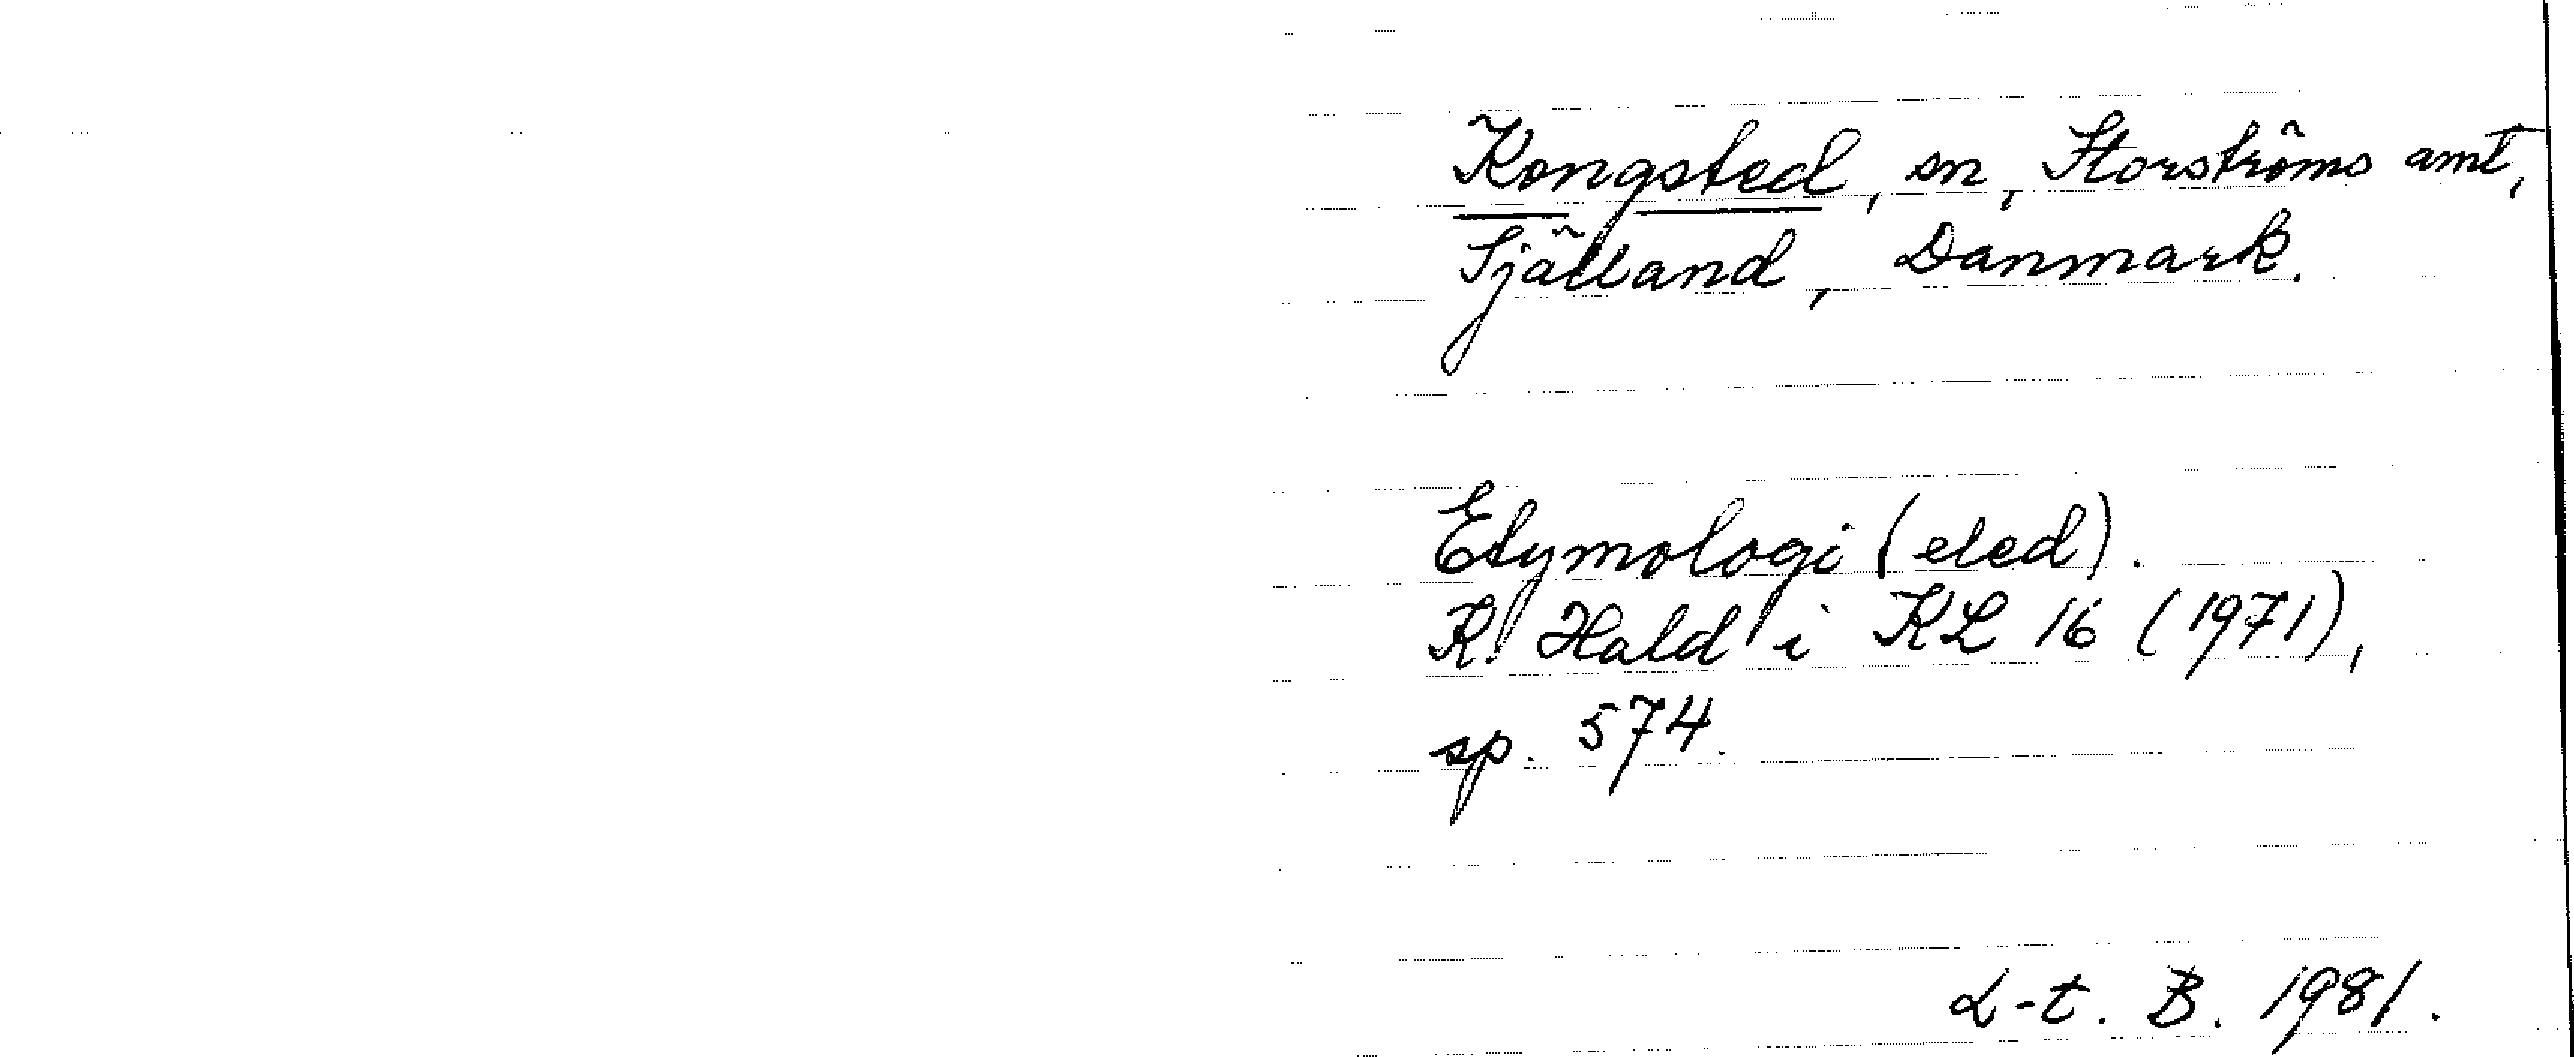 Kongsted, sn, Storströms amt,
Själland, Danmark.
Etymologi (eled).
K. Hald i KL 16 (1971),
sp. 574.
L-t. B. 1981.